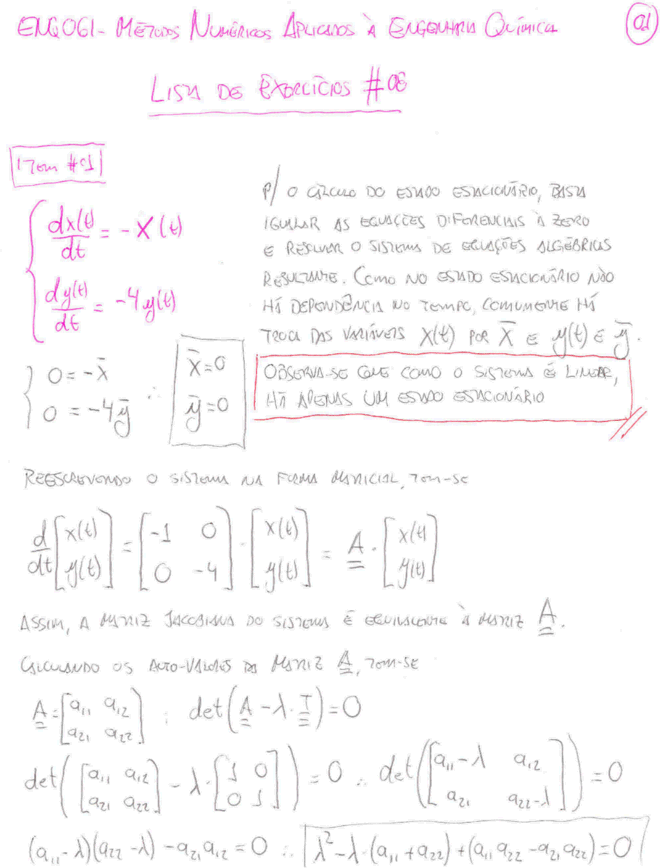 ENG061- MÉTODOS NUMÉRICOS APLICADOS À ENGENHARIA QUÍMICA
01
LISTA DE EXERCÍCIOS #06
ITEM #01
dx(t)/dt = - x(t)
dy(t)/dt = -4y(t)
P/ O CÁLCULO DO ESTADO ESTACIONÁRIO, BASTA
IGUALAR AS EQUAÇÕES DIFERENCIAIS À ZERO
E RESOLVER O SISTEMA DE EQUAÇÕES ALGÉBRICAS
RESULTANTE. COMO NO ESTADO ESTACIONÁRIO NÃO
HÁ DEPENDÊNCIA NO TEMPO, COMUMENTE HÁ
TROCA DAS VARIÁVEIS x(t) POR x̄ E y(t) E ȳ.
0 = -x̄
0 = -4ȳ
∴
x̄ = 0
ȳ = 0
OBSERVA-SE QUE COMO O SISTEMA É LINEAR,
HÁ APENAS UM ESTADO ESTACIONÁRIO
REESCREVENDO O SISTEMA NA FORMA MATRICIAL, TEM-SE
d/dt [x(t) ; y(t)] = [-1 0 ; 0 -4] · [x(t) ; y(t)] = A · [x(t) ; y(t)]
ASSIM, A MATRIZ JACOBIANA DO SISTEMA É EQUIVALENTE À MATRIZ A.
CALCULANDO OS AUTO-VALORES DA MATRIZ A, TEM-SE
A = [a₁₁ a₁₂ ; a₂₁ a₂₂] : det(A - λ·I) = 0
det([a₁₁ a₁₂ ; a₂₁ a₂₂] - λ·[1 0 ; 0 1]) = 0 ∴ det([a₁₁-λ a₁₂ ; a₂₁ a₂₂-λ]) = 0
(a₁₁-λ)(a₂₂-λ) - a₂₁a₁₂ = 0 ∴ λ² - λ·(a₁₁+a₂₂) + (a₁₁a₂₂ - a₂₁a₂₂) = 0